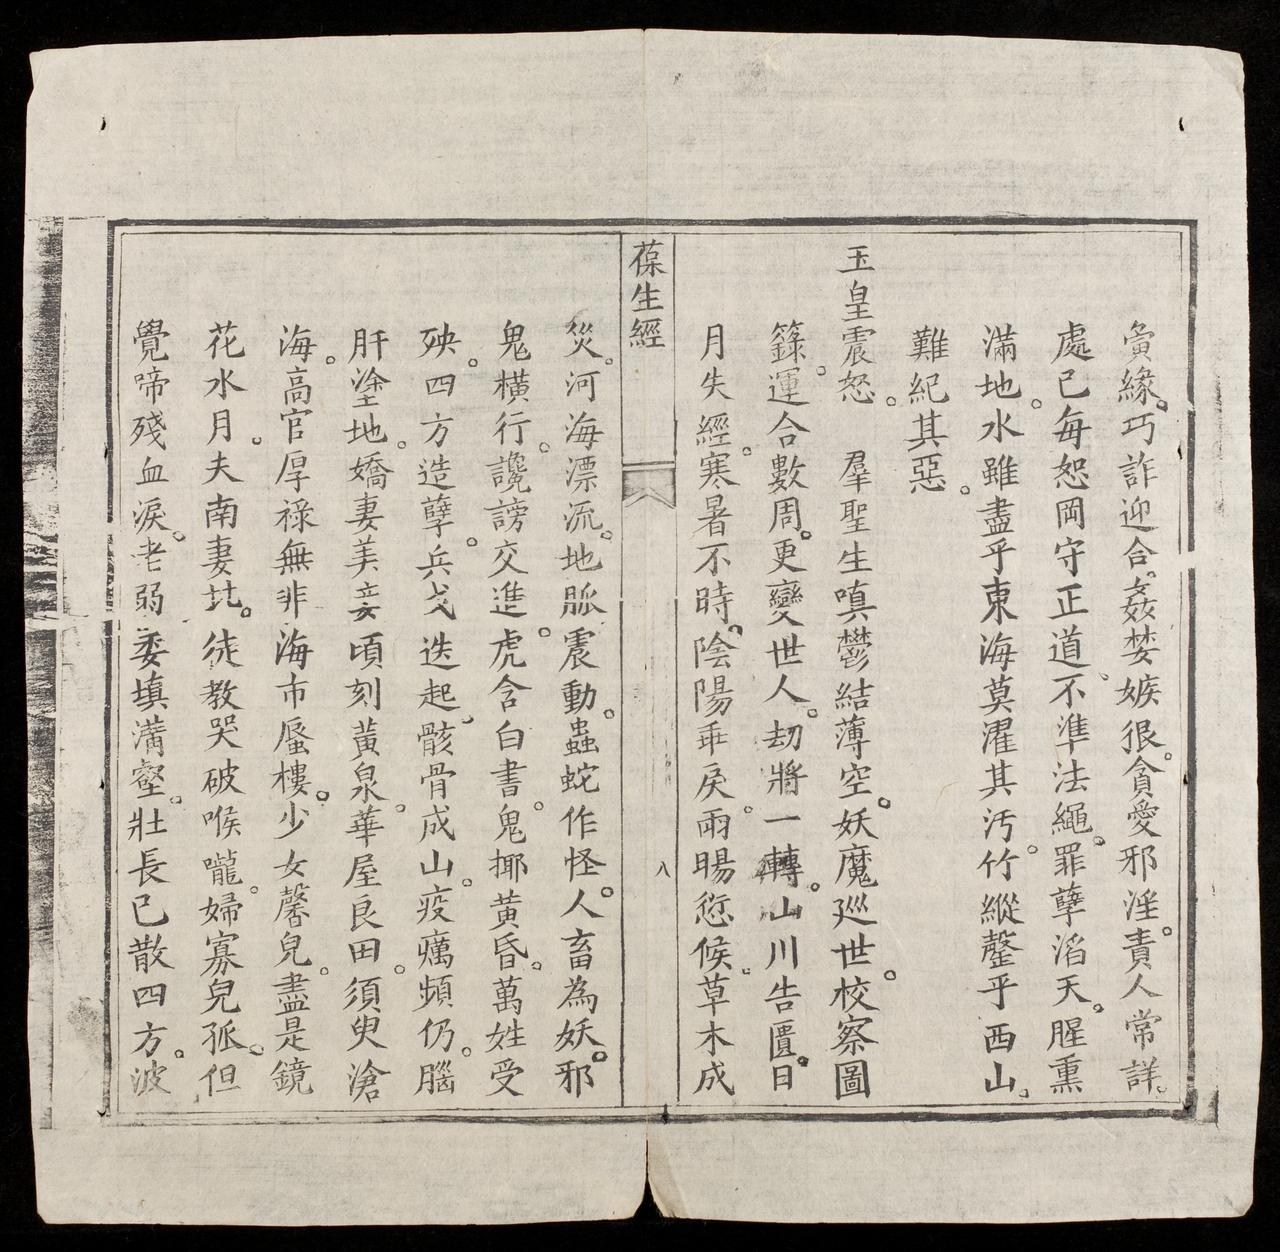 夤緣。巧詐迎合。姦婪嫉狠。貪愛邪淫。責人常詳。
處己每恕。罔守正道。不準法繩。罪孽滔天。腥熏
滿地。水雖盡乎東海。莫濯其汚。竹縱罄乎西山。
難紀其惡。
玉皇震怒。羣聖生嗔。鬱結薄空。妖魔廵世。校察圖
籙。運合數周。更變世人。劫將一轉。山川告匱。日
月失經。寒暑不時。陰陽乖戾。雨暘愆候。草木成
葆生經
八
災。河海漂流。地脈震動。蟲蛇作怪。人畜為妖。邪
鬼橫行。讒謗交進。虎含白書。鬼揶黃昏。萬姓受
殃。四方造孽。兵戈迭起。骸骨成山。疫癘頻仍。腦
肝塗地。嬌妻美妾。頃刻黃泉。華屋良田。須臾滄
海。高官厚祿。無非海市蜃樓。少女馨兒。盡是鏡
花水月。夫南妻北。徒教哭破喉嚨。婦寡兒孤。但
覺啼殘血淚。老弱委填溝壑。壯長已散四方。波